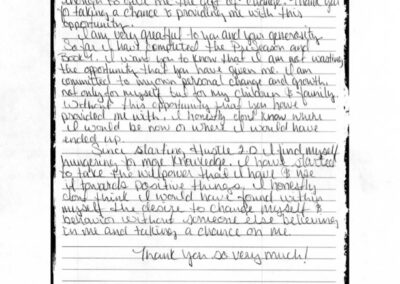 enough to give me the gift of change. Thank you
for taking a chance & providing me with this
opportunity.
I am very grateful to you and your generosity.
So far I have completed the Preseason and
Book 1. I want you to know that I am not wasting
the opportunity that you have given me. I am
committed to my own personal change and growth
not only for myself but for my children & family.
Without this opportunity that you have
provided me with. I honestly dont know where
I would be now or where I would have
ended up.
Since starting Hustle 2.0 I find myself
hungering for more knowledge. I have started
to take the willpower that I have & use
it towards positive things, I honestly
dont think I would have found within
myself the desire to change myself &
behavior without someone else believing
in me and taking a chance on me.
Thank you so very much!